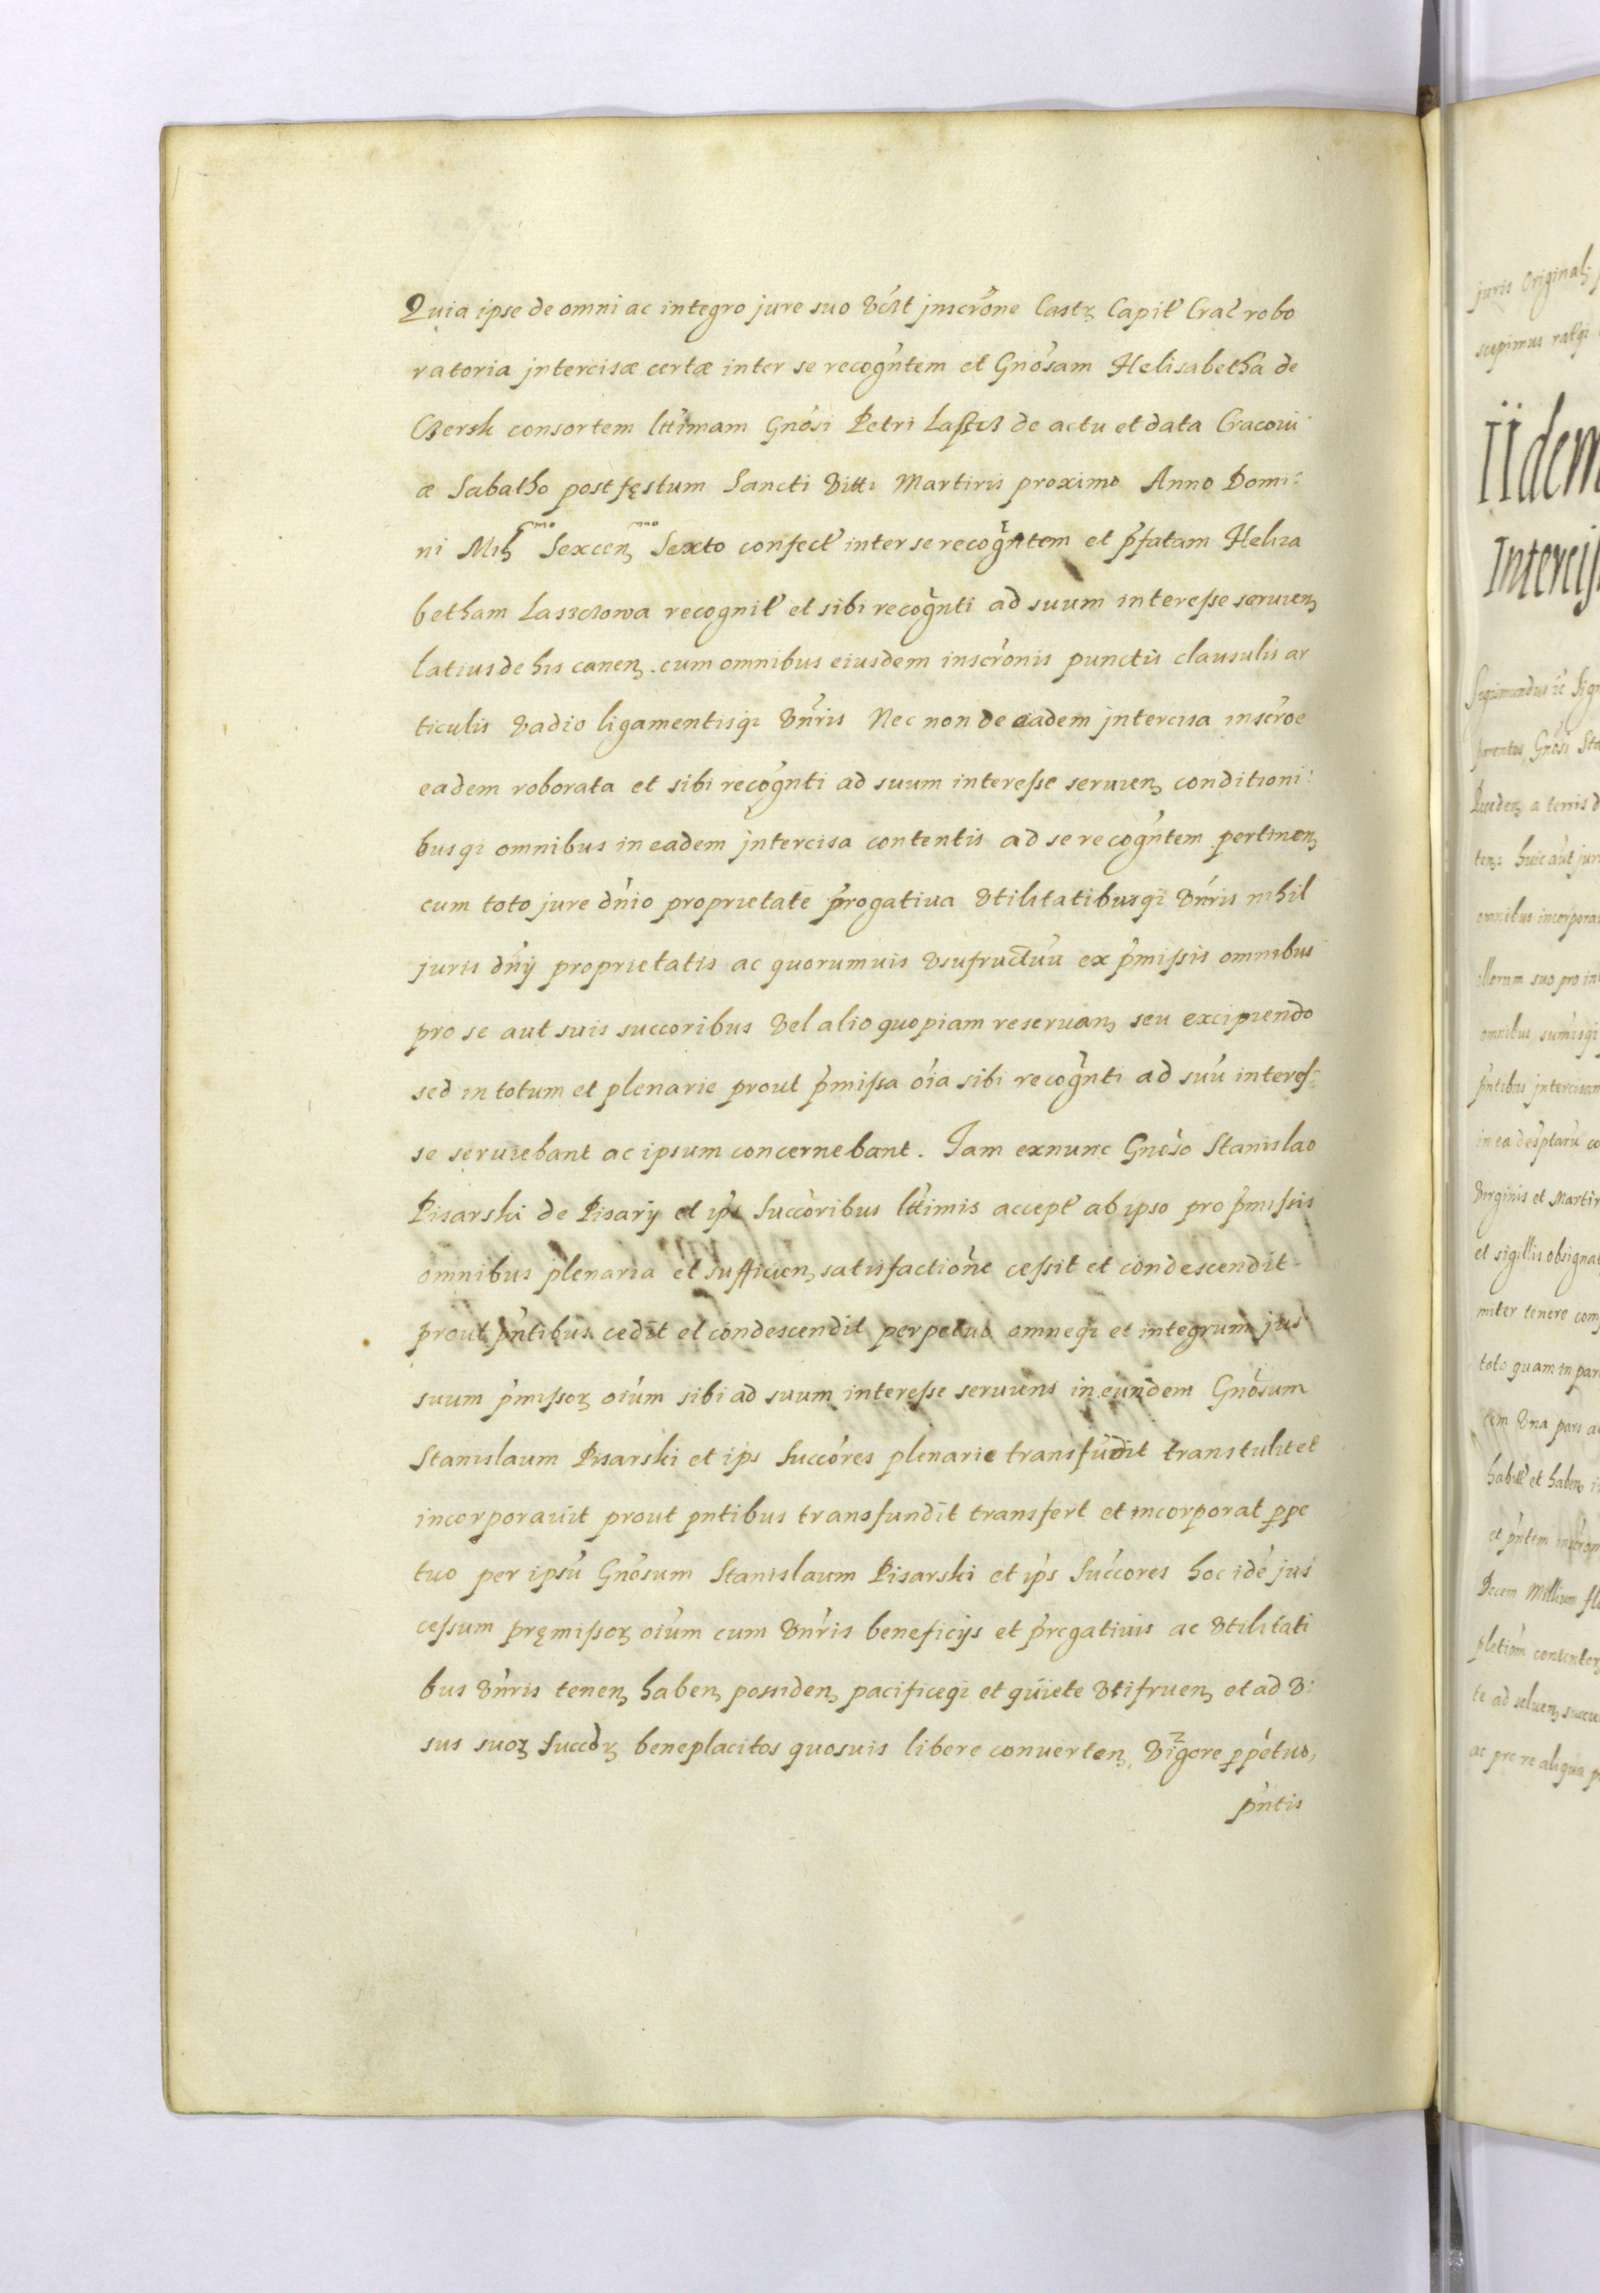 Quia ipse de omni ac integro jure suo vc̃lt jnscr̃one Castɜ Capit̃ Crac̃ robo
ratoria jntercisæ certæ inter se recogñtem et Gnõsam Helisabethã de
Czersk consortem lt̃timam Gnõsi Petri Laſzcz de actu et data Cracovi
æ Sabatho post fęstum Sancti Vitti Martiris proximo Anno Domi:
ni Milɜmo Sexcenɜmo Sexto confect̃ inter se recogñtem et p̃fatam Heliza
betham Laszczowa recognit̃ et sibi recogñti ad suum intereſse seruienɜ
latius de his canenɜ. cum omnibus eiusdem inscr̃onis punctis clausulis ar
ticulis vadio ligamentisqɜ vñris Nec non de eadem jntercisa inscr̃oe
eadem roborata et sibi recogñti ad suum intereſse seruienɜ conditioni:
busqɜ omnibus in eadem jntercisa contentis ad se recogñtem pertinenɜ
cum toto jure dñio proprietate p̃rogatiua vtilitatibusqɜ vñris nihil
juris dñij proprietatis ac quorumuis vsufructũu ex p̃miſsis omnibus
pro se aut suis succoribus vel alio quopiam reseruanɜ seu excipiendo
sed in totum et plenarie prout p̃miſsa õia sibi recogñti ad suũ intereſ:
se seruiebant ac ipsum concernebant. Iam exnunc Gnõso Stanislao
Pisarski de Pisary et ip̃s Succõribus lt̃timis accept̃ ab ipso pro p̃miſsis
omnibus plenaria et sufficienɜ satisfactiõne ceſsit et condescendit
prout pñtibus cedit et condescendit perpetuo omneqɜ et integrum jus
suum p̃miſsoɜ oĩum sibi ad suum intereſse seruiens in eundem Gnõsum
Stanislaum Pisarski et ip̃s Succõres plenarie transfudit transtulit et
incorporauit prout pntibus transfundit transfert et incorporat ppe
tuo per ipsũ Gnõsum Stanislaum Pisarski et ip̃s Succõres hoc idẽ jus
ceſsum pręmiſsoɜ oĩum cum vñris beneficijs et p̃rogatiuis ac vtilitati
bus vñris tenenɜ habenɜ possidenɜ pacificeqɜ et quiete vtifruenɜ et ad v:
sus suoɜ Succõɜ beneplacitos quosuis libere conuertenɜ, vigore ppétuo,
pñtis
juris Originalɜ
IIdem
omnibus
Virginis et Martir
et sigillis obsignat
toto quam in par
Decem Millium fl
ac pro re aliqua